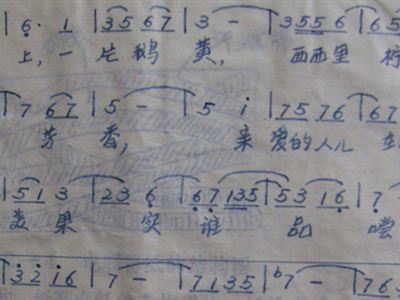 | 6 · 1 | 3 5 6 7 | 3 – | 3 5 5 6 | 6 5
上, 一 片 鹅 黄, 西西里 柠
7 6 7 | 5 – | 5 i | 7 5 7 6 | 6 7
芳 香, 亲 爱的人儿
5 1 3 | 2 3 6 | 6 7 1 3 5 | 5 3 1 6 | 7
美 果 实 谁 品 嚐
3 2 1 6 | 7 – | 7 1 3 5 | ♭7 – | 7 6